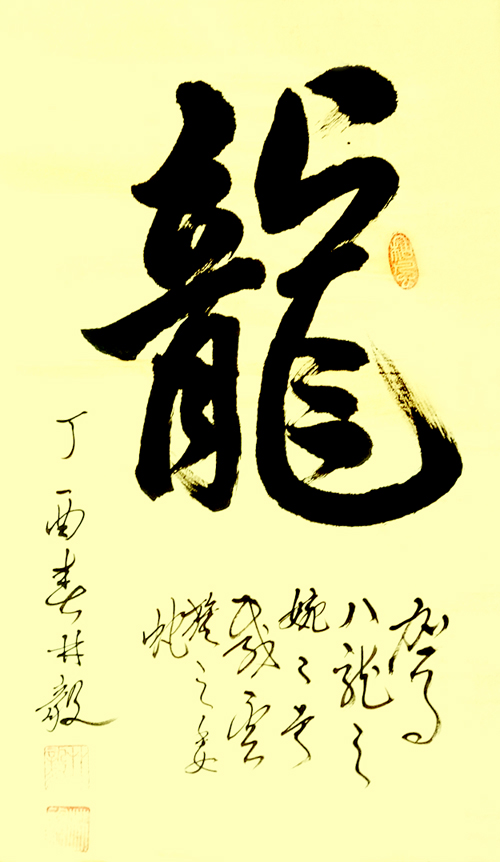 龍
駕
八龍之
婉〻兮
載雲
旗之委
蛇
丁酉春林毅